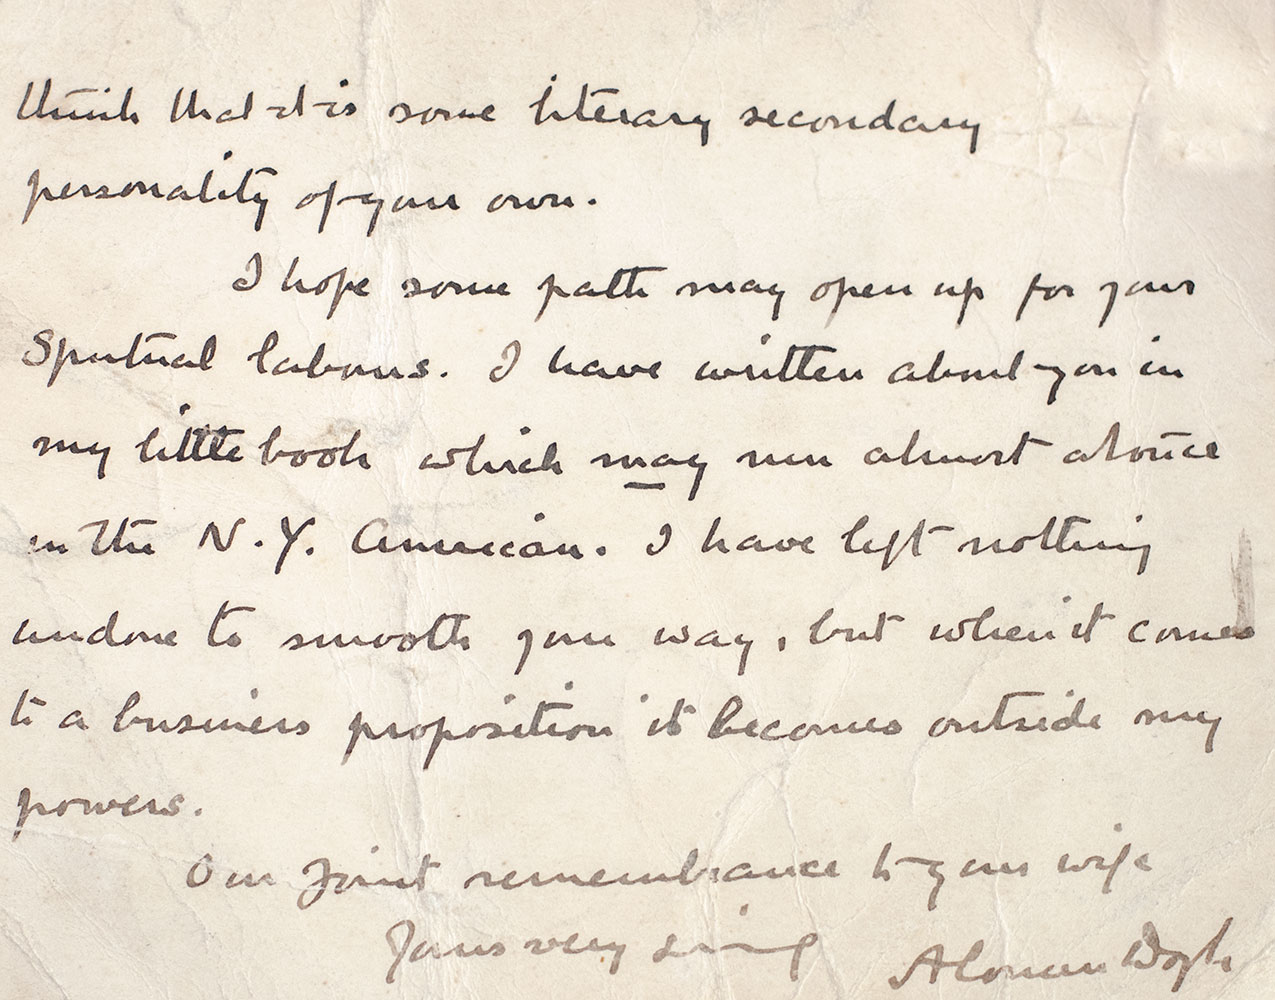 think that it is some literary secondary
personality of your own.
I hope some path may open up for your
Spiritual labours. I have written about you in
my little book which may run almost at once
in the N.Y. American. I have left nothing
undone to smooth your way, but when it comes
to a business proposition it becomes outside my
powers.
Our joint remembrance to your wife
Yours very sincerely
A Conan Doyle